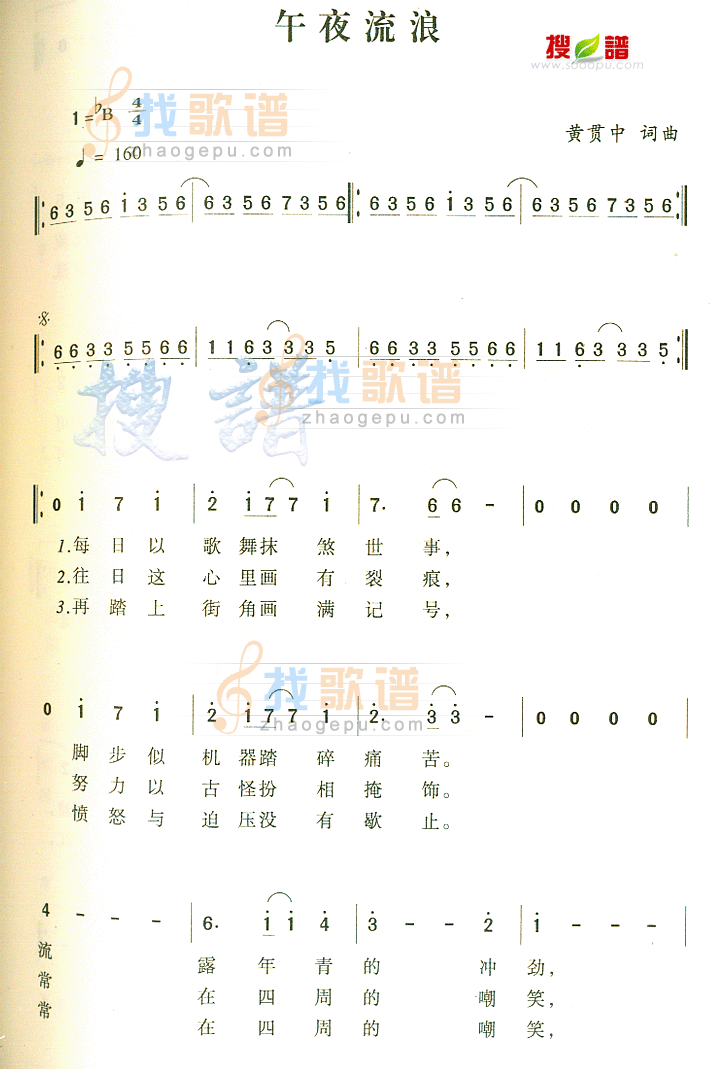 午夜流浪
搜谱
www.sooopu.com
1=♭B 4/4
找歌谱
zhaogepu.com
♩= 160
黄贯中 词曲
6356i356 | 63567356 | 6356i356 | 63567356
66335566 | 1163 3335 | 6633 5566 | 1163 3335
搜谱
找歌谱
zhaogepu.com
0 i 7 i | 2 i77 i | 7. 66 - | 0 0 0 0
1.每日以 歌舞抹 煞世 事,
2.往日这 心里画 有裂 痕,
3.再踏上 街角画 满记 号,
找歌谱
zhaogepu.com
0 i 7 i | 2 i77 i | 2. 33 - | 0 0 0 0
脚步似 机器踏 碎痛 苦。
努力以 古怪扮 相掩 饰。
愤怒与 迫压没 有歇 止。
4 - - - | 6. ii 4 | 3 - - 2 | i - - -
流 露年青的 冲劲,
常 在四周的 嘲笑,
常 在四周的 嘲笑,